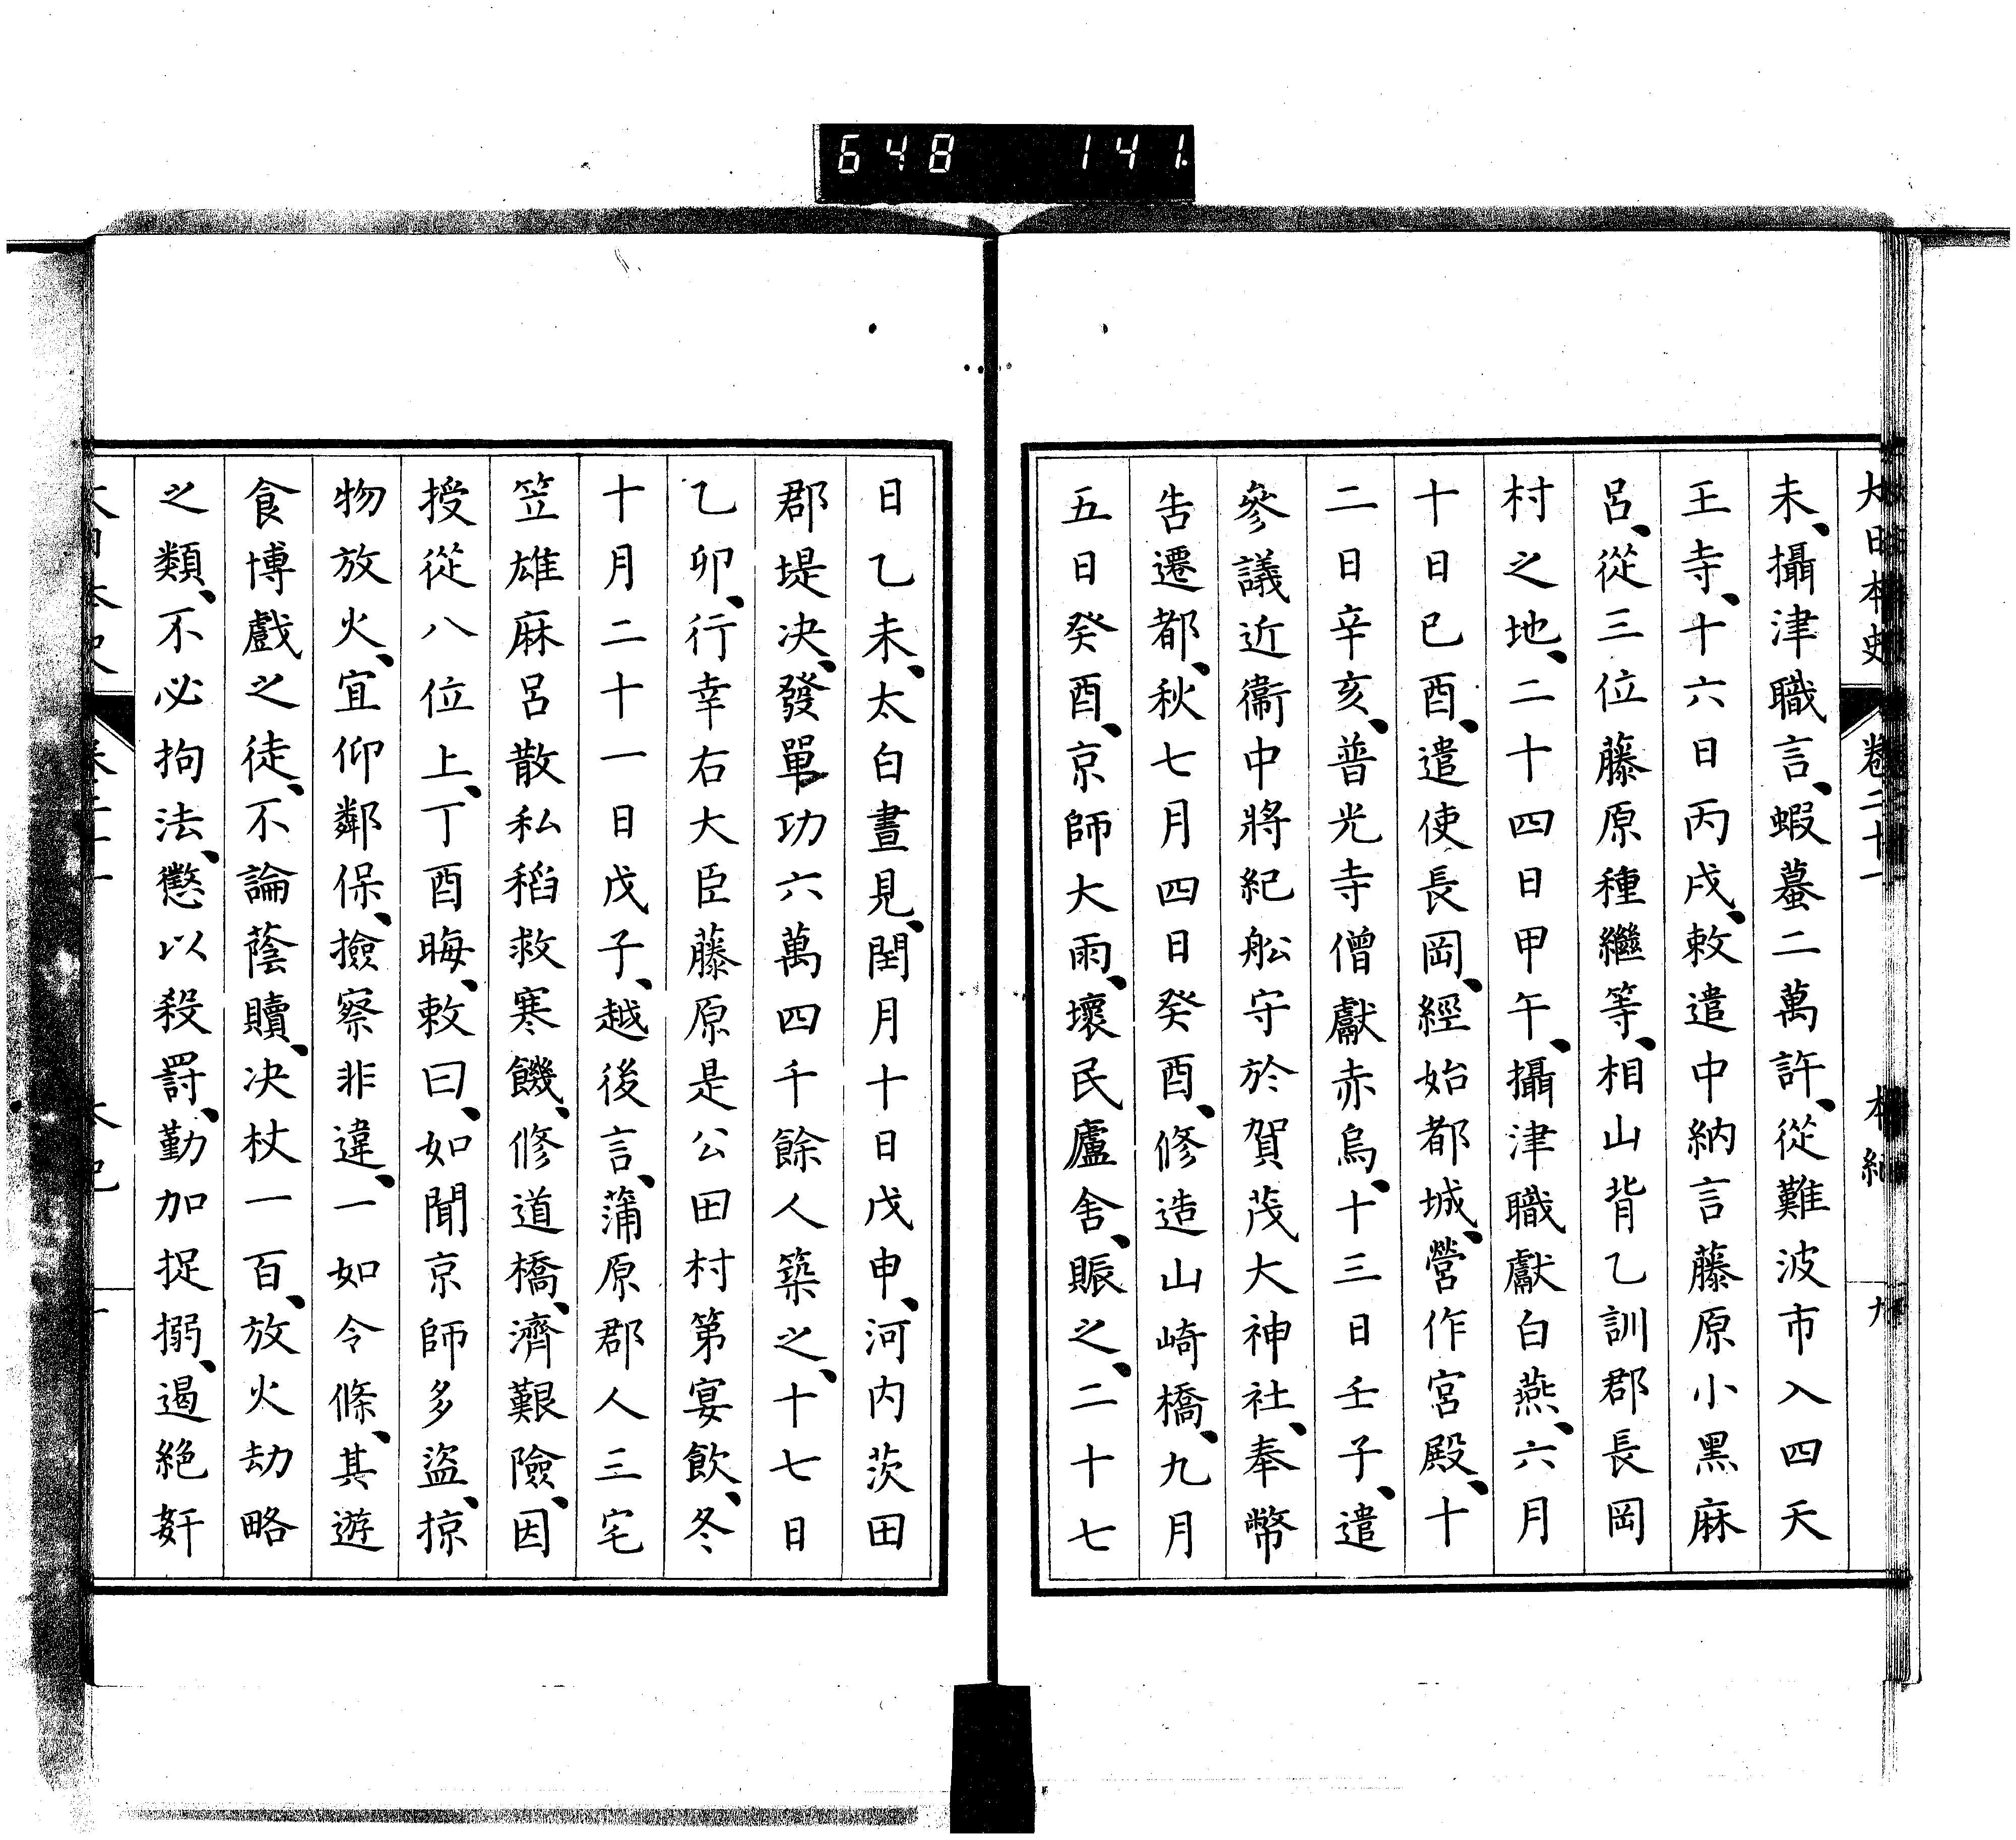 648 141
大日本史 卷二十一 本紀 九
未、攝津職言、蝦蟇二萬許、從難波市入四天
王寺、十六日丙戌、敕遣中納言藤原小黑麻
呂、從三位藤原種繼等、相山背乙訓郡長岡
村之地、二十四日甲午、攝津職獻白燕、六月
十日己酉、遣使長岡、經始都城、營作宮殿、十
二日辛亥、普光寺僧獻赤烏、十三日壬子、遣
參議近衞中將紀舩守於賀茂大神社、奉幣
告遷都、秋七月四日癸酉、修造山崎橋、九月
五日癸酉、京師大雨、壞民廬舍、賑之、二十七
日乙未、太白晝見、閏月十日戊申、河內茨田
郡堤决、發單功六萬四千餘人築之、十七日
乙卯、行幸右大臣藤原是公田村第宴飲、冬
十月二十一日戊子、越後言、蒲原郡人三宅
笠雄麻呂散私稻救寒饑、修道橋、濟艱險、因
授從八位上、丁酉晦、敕曰、如聞京師多盜、掠
物放火、宜仰鄰保、撿察非違、一如令條、其遊
食博戲之徒、不論蔭贖、决杖一百、放火劫略
之類、不必拘法、懲以殺罸、勤加捉搦、遏絕姧